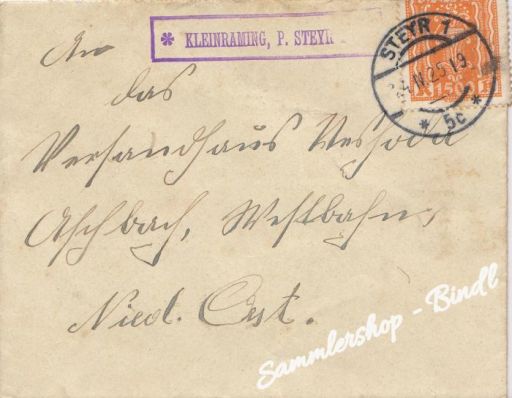 * KLEINRAMING, P. STEYR
STEYR 1
5c
An
das
Versandhaus
Aschbach, Westbahn,
Nied. Öst.
Sammlershop - Bindl